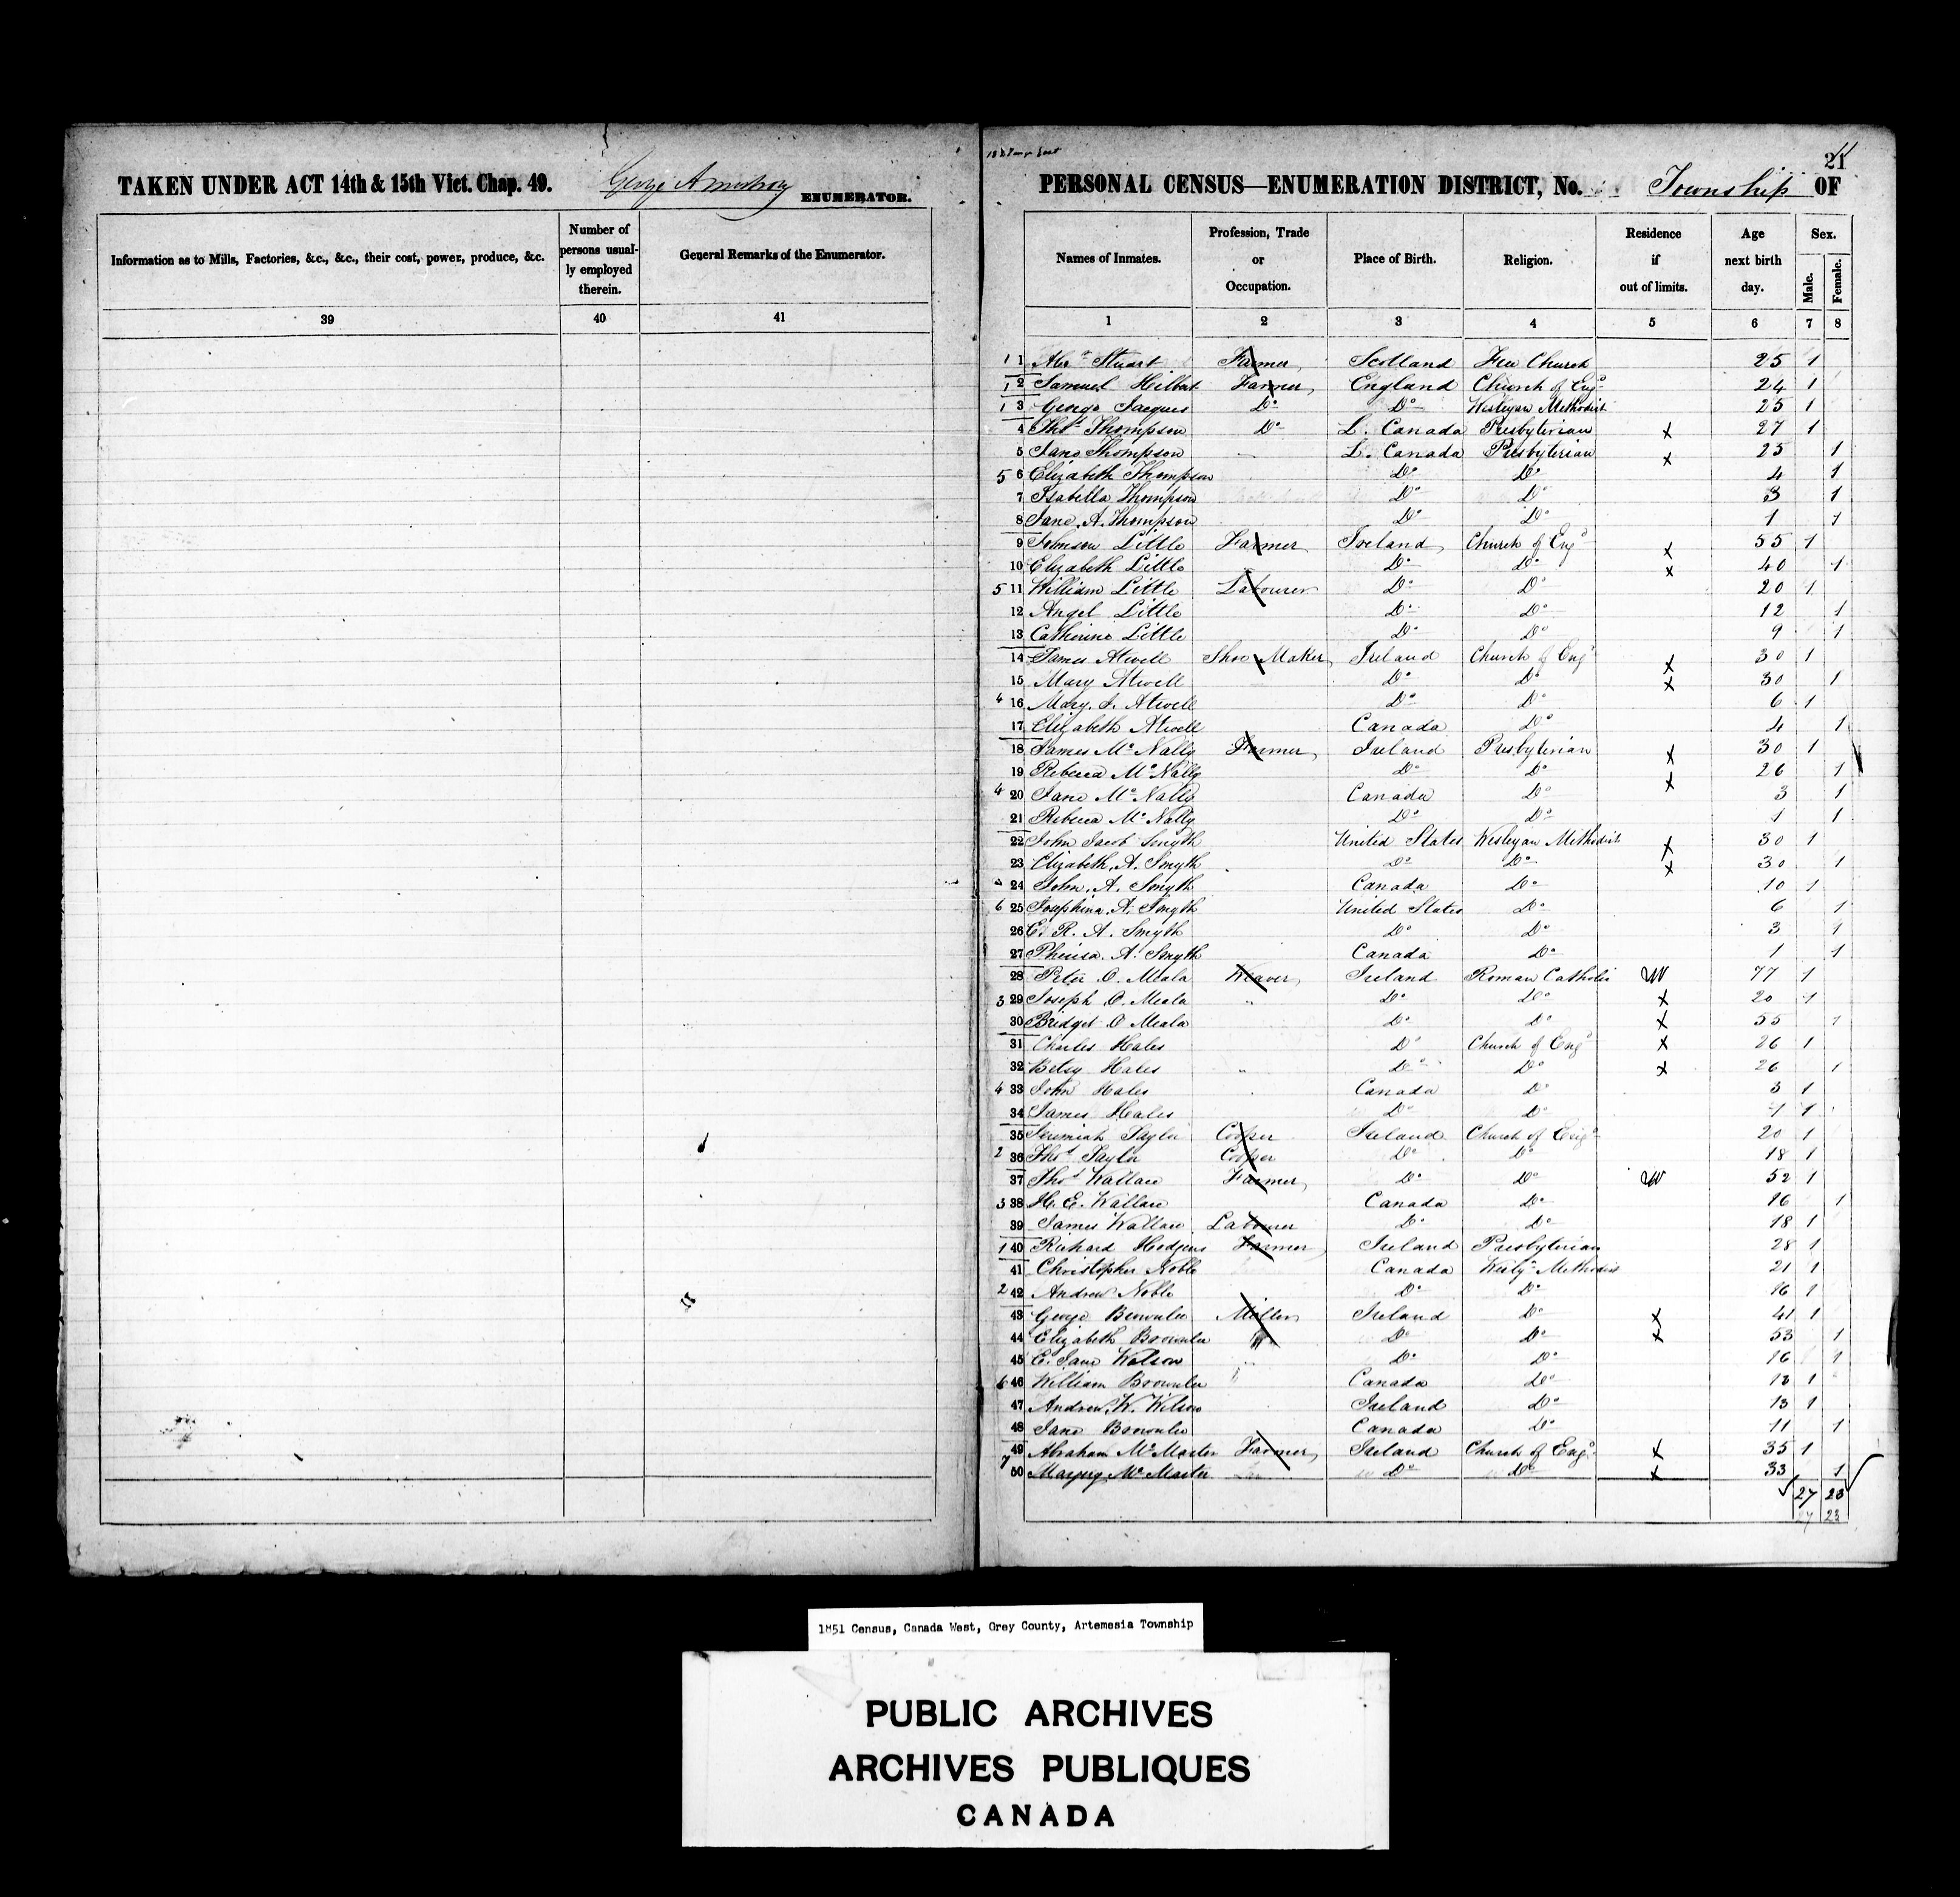 TAKEN UNDER ACT 14th & 15th Vict. Chap. 49. George Armstrong ENUMERATOR.
Information as to Mills, Factories, &c., &c., their cost, power, produce, &c.
Number of persons usually employed therein.
General Remarks of the Enumerator.
39 40 41
21
PERSONAL CENSUS—ENUMERATION DISTRICT, No. Township OF
Names of Inmates. Profession, Trade or Occupation. Place of Birth. Religion. Residence if out of limits. Age next birth day. Sex. Male. Female.
1 2 3 4 5 6 7 8
1 1 Alexr Stuart Farmer Scotland Free Church 25 1
1 2 Samuel Hilbert Farmer England Church of Engd 24 1
1 3 George Jacques Do Do Wesleyan Methodist 25 1
4 Thos Thompson Do L. Canada Presbyterian x 27 1
5 Jane Thompson L. Canada Presbyterian x 25 1
5 6 Elizabeth Thompson Do Do 4 1
7 Isabella Thompson Do Do 3 1
8 Jane A. Thompson Do Do 1 1
9 Johnson Little Farmer Ireland Church of Engd x 55 1
10 Elizabeth Little Do Do x 40 1
5 11 William Little Labourer Do Do 20 1
12 Angel Little Do Do 12 1
13 Catherine Little Do Do 9 1
14 James Atwell Shoe Maker Ireland Church of Engd x 30 1
15 Mary Atwell Do Do x 30 1
4 16 Mary. J. Atwell Do Do 6 1
17 Elizabeth Atwell Canada Do 4 1
18 James McNally Farmer Ireland Presbyterian x 30 1
19 Rebecca McNally Do Do x 26 1
4 20 Jane McNally Canada Do 3 1
21 Rebecca McNally Do Do 1 1
22 John Jacob Smyth United States Wesleyan Methodist x 30 1
23 Elizabeth A. Smyth Do Do x 30 1
24 John. A. Smyth Canada Do 10 1
6 25 Josephina. A. Smyth United States Do 6 1
26 E. R. A. Smyth Do Do 3 1
27 A. Smyth Canada Do 1 1
28 Peter O. Meala Weaver Ireland Roman Catholic W 77 1
3 29 Joseph O. Meala " Do Do x 20 1
30 Bridget O Meala Do Do x 55 1
31 Charles Hales Do Church of Engd x 26 1
32 Betsy Hales " Do Do x 26 1
4 33 John Hales Canada Do 3 1
34 James Hales Do Do 1 1
35 Jeremiah Taylor Cooper Ireland Church of Engd 20 1
2 36 Thos Taylor Cooper Do Do 18 1
37 Thos Wallace Farmer Do Do W 52 1
3 38 H. E. Wallace Canada Do 16 1
39 James Wallace Labourer Do Do 18 1
1 40 Richard Hodgins Farmer Ireland Presbyterian 28 1
41 Christopher Noble Canada Wesly Methodist 21 1
2 42 Andrew Noble Do Do 16 1
43 George Brownlee Miller Ireland Do x 41 1
44 Elizabeth Brownlee Do Do x 53 1
45 E. Jane Watson " Do Do 16 1
6 46 William Brownlee Canada Do 13 1
47 Andrew. W. Wilson Ireland Do 13 1
48 Jane Brownlee Canada Do 11 1
49 Abraham McMaster Farmer Ireland Church of Engd x 35 1
7 50 McMaster Do Do x 33 1
27 23
27 23
1851 Census, Canada West, Grey County, Artemesia Township
PUBLIC ARCHIVES
ARCHIVES PUBLIQUES
CANADA